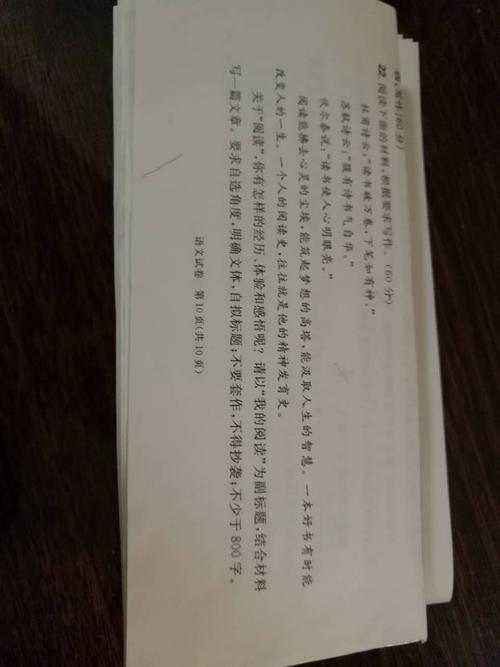 四、写作(60分)
22. 阅读下面的材料,根据要求写作。(60分)
杜甫诗云:“读书破万卷,下笔如有神。”
苏轼诗云:“腹有诗书气自华。”
伏尔泰说:“读书使人心明眼亮。”
阅读能拂去心灵的尘埃,能筑起梦想的高塔,能汲取人生的智慧。一本好书有时能
改变人的一生。一个人的阅读史,往往就是他的精神发育史。
关于“阅读”,你有怎样的经历、体验和感悟呢?请以“我的阅读”为副标题,结合材料
写一篇文章。要求自选角度,明确文体,自拟标题;不要套作,不得抄袭;不少于800字。
语文试卷 第10页(共10页)